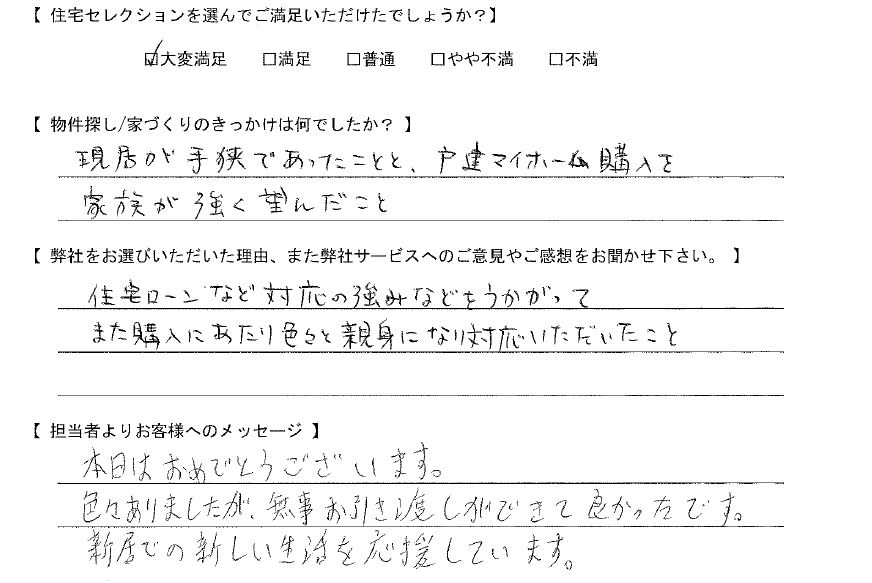 【 住宅セレクションを選んでご満足いただけたでしょうか？】
☑大変満足 □満足 □普通 □やや不満 □不満
【 物件探し/家づくりのきっかけは何でしたか？ 】
現居が手狭であったことと、戸建マイホーム購入を
家族が強く望んだこと
【 弊社をお選びいただいた理由、また弊社サービスへのご意見やご感想をお聞かせ下さい。 】
住宅ローンなど対応の強みなどをうかがって
また購入にあたり色々と親身になり対応いただいたこと
【 担当者よりお客様へのメッセージ 】
本日はおめでとうございます。
色々ありましたが、無事お引き渡しができて良かったです。
新居での新しい生活を応援しています。